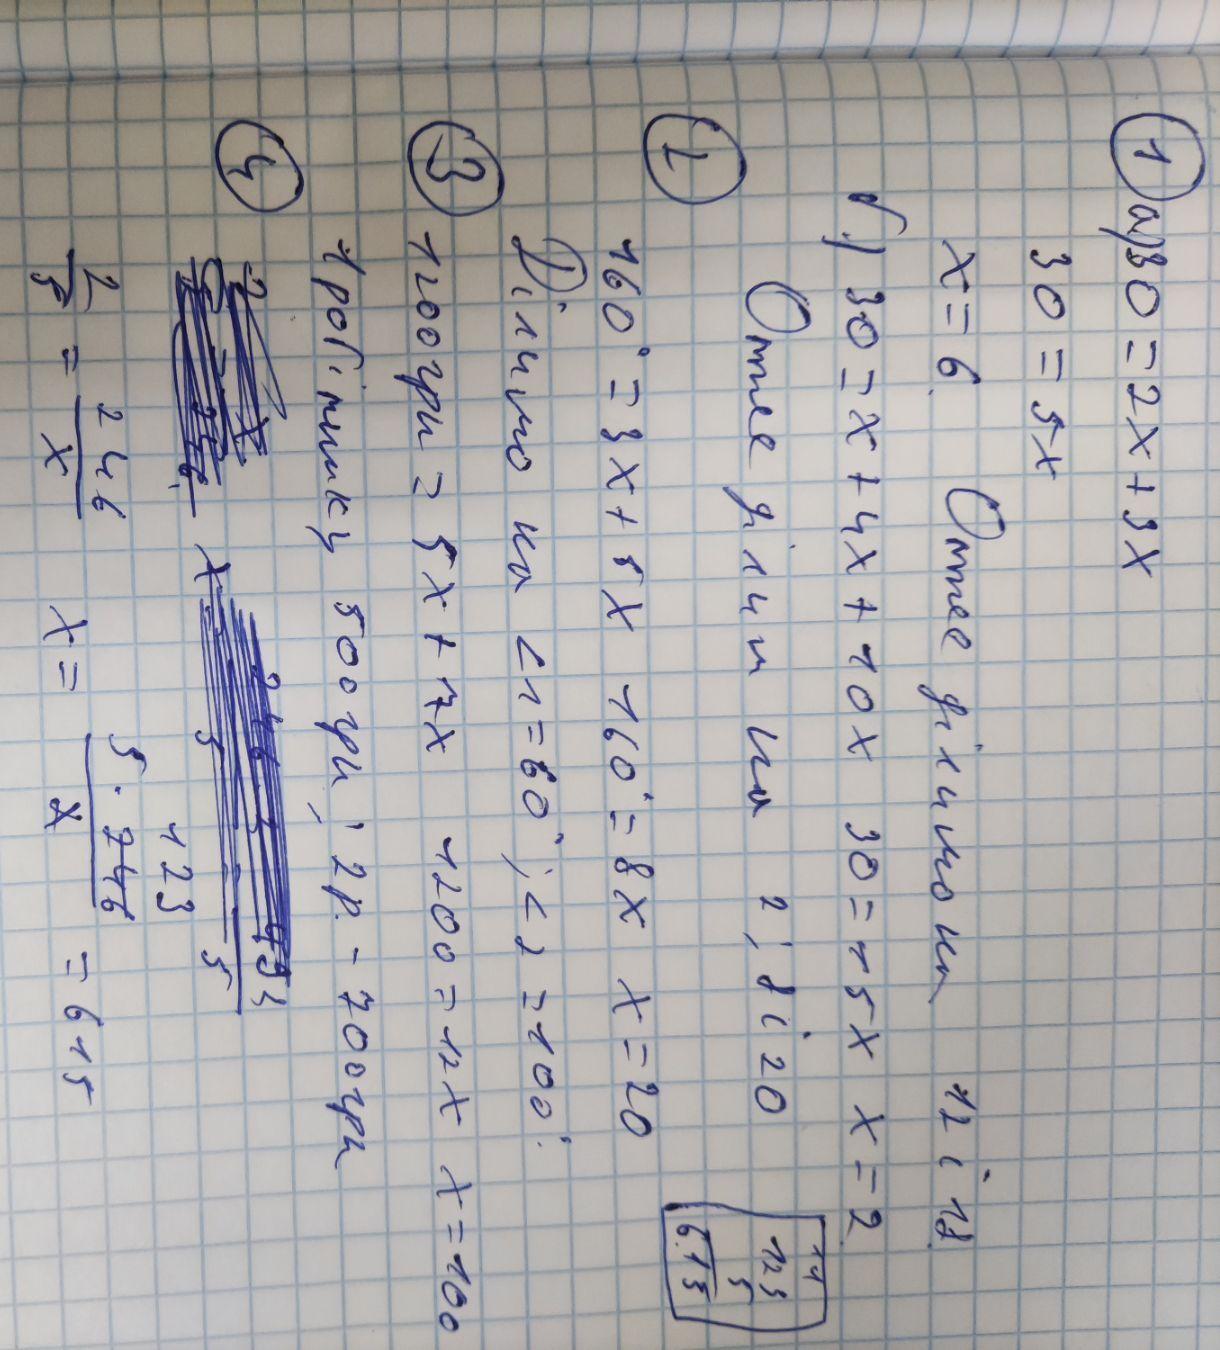 ① а) 30 = 2x + 3x
30 = 5x
x = 6. Отже ділимо на 12 і 18
б) 30 = x + 4x + 10x 30 = 15x x = 2
Отже ділим на 2; 8 і 20
②
160° = 3x + 5x 160° = 8x x = 20
Ділимо на <1 = 60°; <2 = 100°
③ 1200грн = 5x + 7x 1200 = 12x x = 100
1 робітнику 500грн; 2р. - 700грн
④
2/5 = 246/x x = 5 · 246/2 = 615
123
14
123
5
615